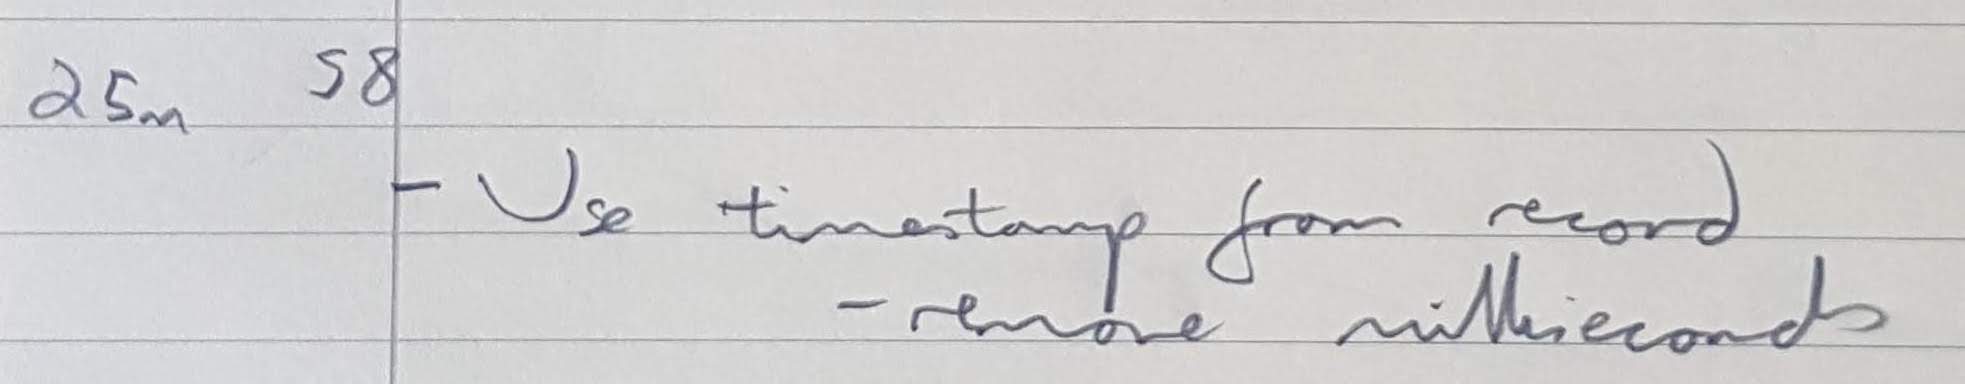 25m 58
- Use timestamp from record
- remove milliseconds